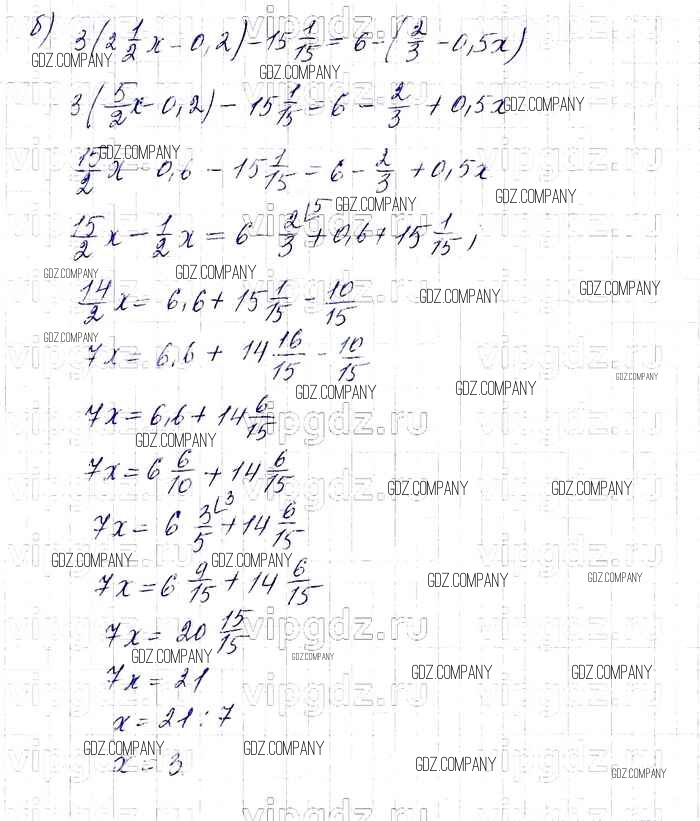 б) 3(2 1/2 x - 0,2) - 15 1/15 = 6 - (2/3 - 0,5x)
3(5/2 x - 0,2) - 15 1/15 = 6 - 2/3 + 0,5x
15/2 x - 0,6 - 15 1/15 = 6 - 2/3 + 0,5x
15/2 x - 1/2 x = 6 - 2/3 ⌊5 + 0,6 + 15 1/15;
14/2 x = 6,6 + 15 1/15 - 10/15
7x = 6,6 + 14 16/15 - 10/15
7x = 6,6 + 14 6/15
7x = 6 6/10 + 14 6/15
7x = 6 3/5 ⌊3 + 14 6/15
7x = 6 9/15 + 14 6/15
7x = 20 15/15
7x = 21
x = 21 : 7
x = 3
GDZ.COMPANY
vipgdz.ru